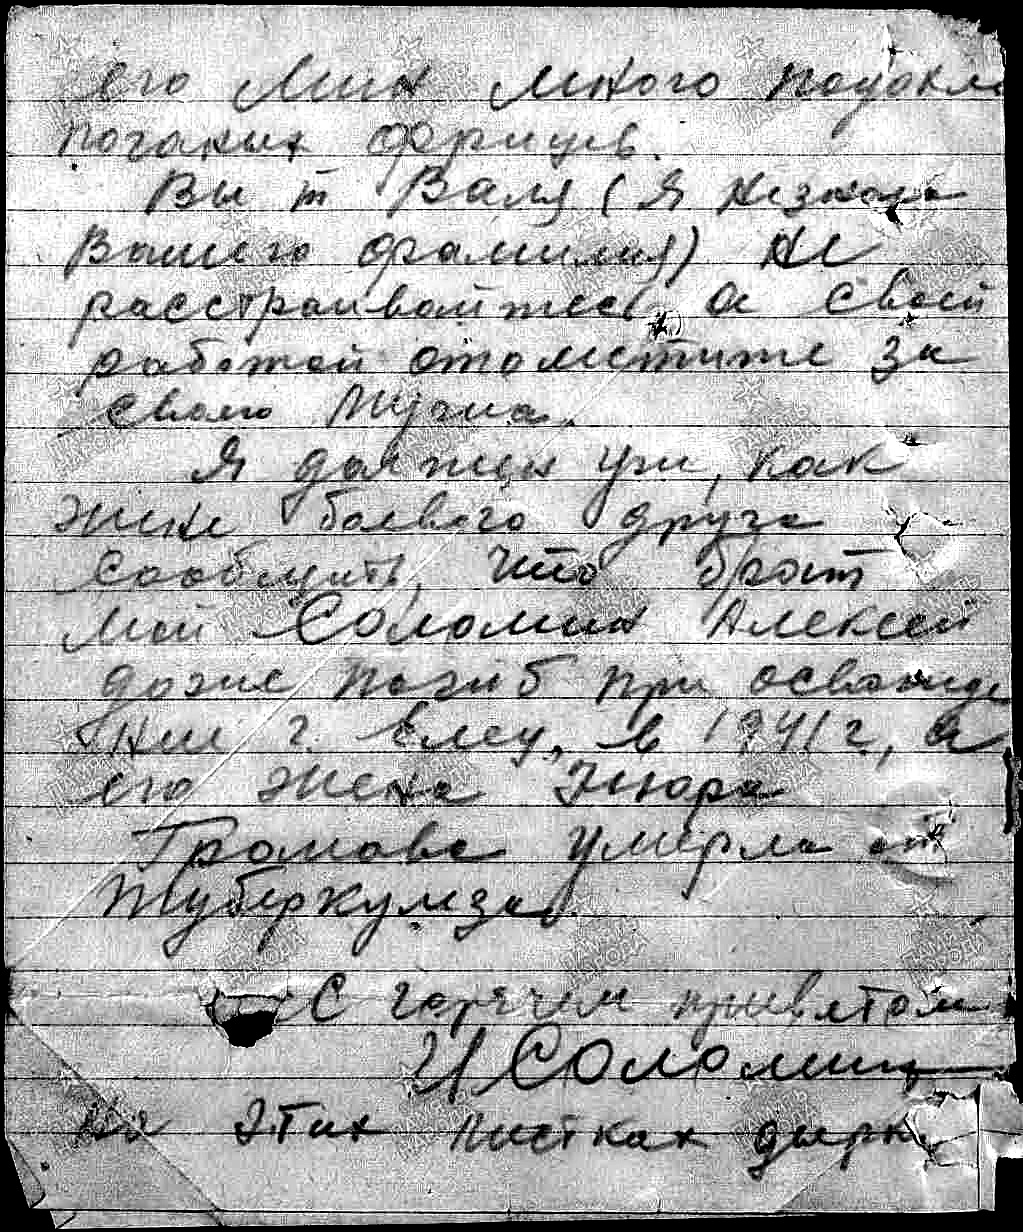 его мин много подохло
поганых фрицев.
Вы т Валя (я незнаю
Вашего фамилия) не
расстраивайтесь а своей
работой отомстите за
своего мужа.
Я должен уж, как
жене боевого друга
сообщить, что брат
мой Соломин Алексей
доже погиб при освобожде
нии г. Елец, в 1941 г, а
его жена Нюра
Громова умерла от
туберкулеза.
С горячим приветом
И Соломин
На этих листках дырки